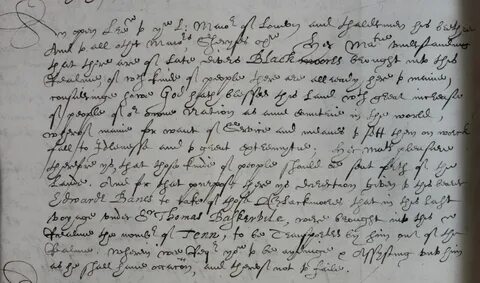 An open Lre to ye L: Maiour of London and thaldermen his brethren
And to all other Maiors, Sheryfes &c. Her Matie understanding
that there are of late divers Blackmoores brought into this
Realme, of wch kinde of people there are allready here to manie,
consideringe howe God hath blessed this land wth great increase
of people of or owne Nation as anie countrie in the world,
wherof manie for want of Service and meanes to sett them on worck
fall to Idlenesse and to great extremytie. Her Mats pleasure
therefore ys, that those kinde of people should be sent forth of the
lande. And for that purpose there ys direction given to this bearer
Edwarde Banes to take of those Blackmoores that in this last
voyage under Sr Thomas Baskervile, were brought into this
Realme the nomber of Tenn, to be Transported by him out of the
Realme. Wherein wee Req: you to be aydinge & Assysting unto him
as he shall have occacion, and thereof not to faile.